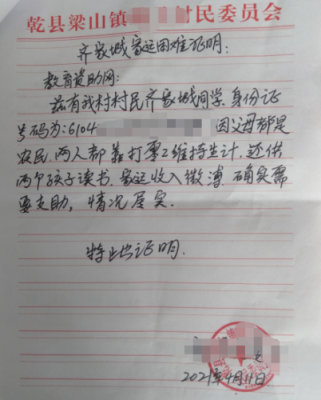 乾县梁山镇 村民委员会
齐家城家运困难证明:
教育资助网:
兹有我村村民齐家城同学 身份证
号码为:6104 因父母都是
农民、两人都靠打零工维持生计,还供
两个孩子读书、家运收入微薄、确实需
要支助,情况属实.
特此证明.
2021年4月11日